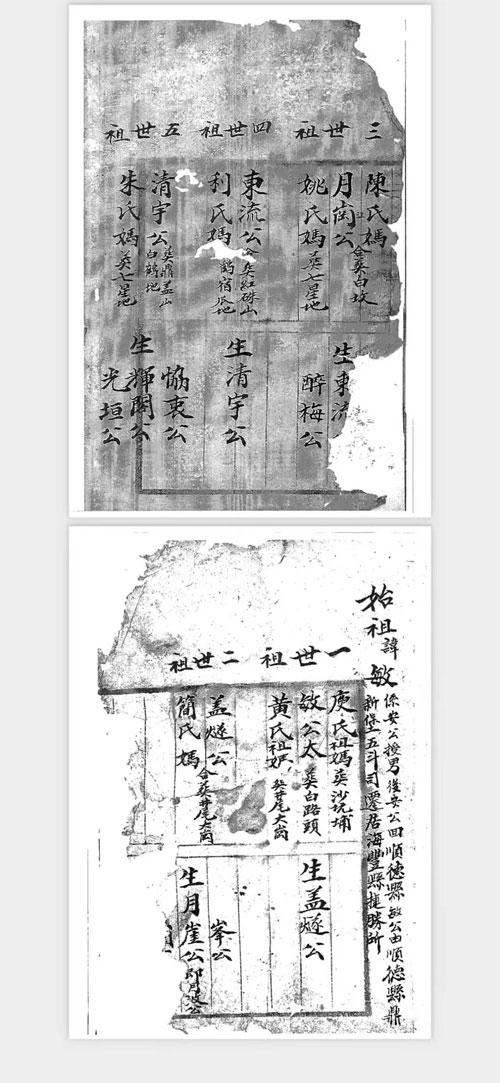 三世祖
陳氏媽
月崗公 合葬白坟
姚氏媽 葬七星地
生東流
醉梅公
四世祖
東流公 葬紅硃山
利氏媽 鶴宿地
生清宇公
五世祖
清宇公 葬鼎盖山白鶴地
朱氏媽 葬七星地
協衷公
生輝閣公
光垣公
始祖諱敏 係安公授男後安公回順德縣敏公由順德縣鼎
新堡五斗司遷居海豐縣捷勝所
一世祖
庾氏祖媽 葬沙坑埔
敏公太 葬白路頭
黄氏祖媽 葬井尾大崗
生盖燧公
二世祖
盖燧公
簡氏媽 合葬井尾大崗
峯公
生月崖公 即月公